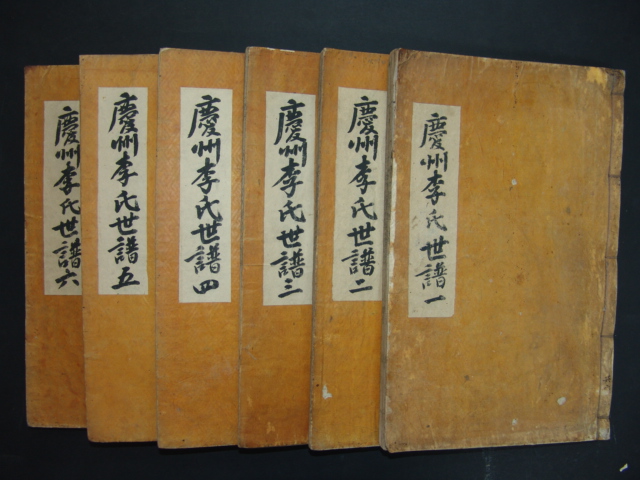 慶州李氏世譜一
慶州李氏世譜二
慶州李氏世譜三
慶州李氏世譜四
慶州李氏世譜五
慶州李氏世譜六